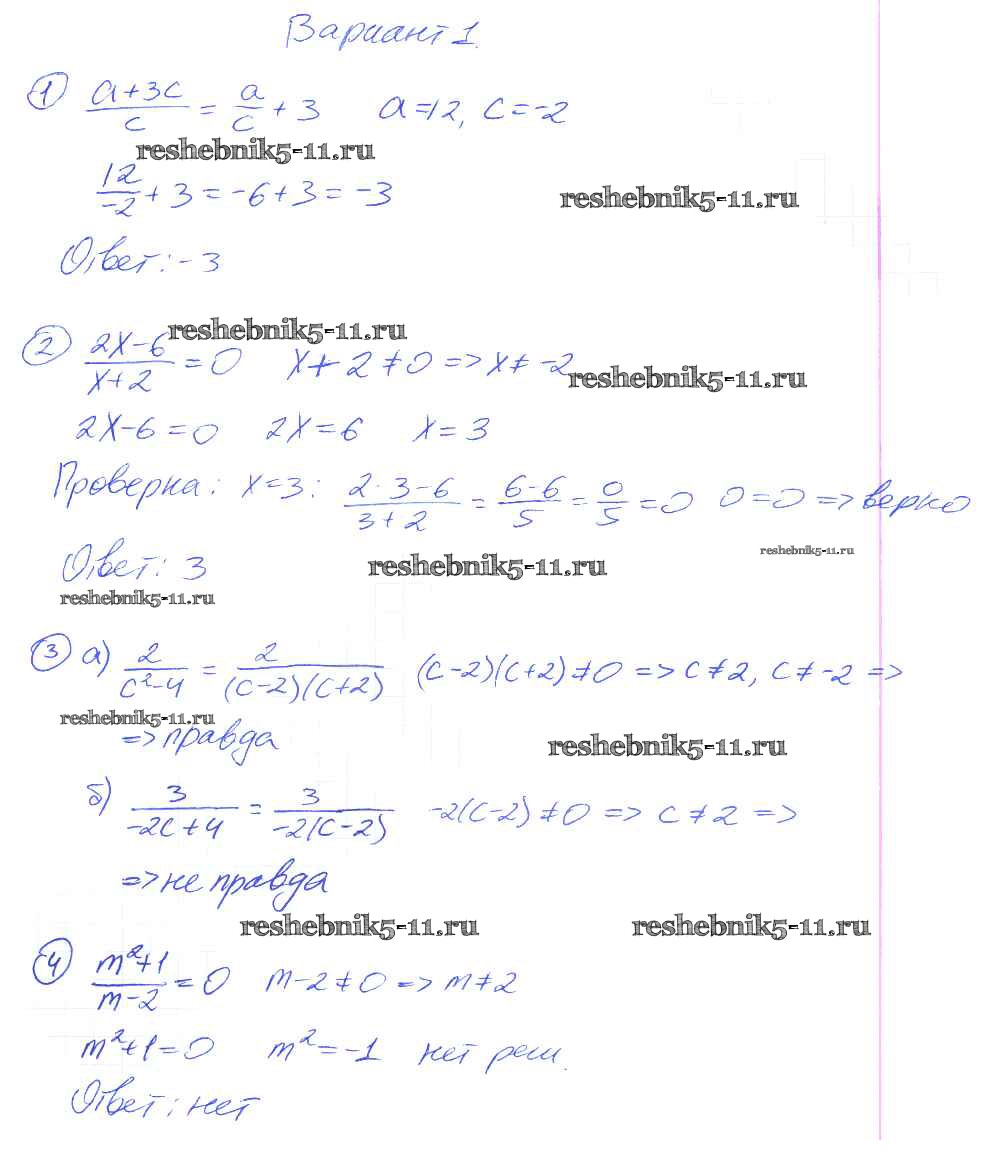 Вариант 1.
① (a+3c)/c = a/c + 3   a=12, c=-2
reshebnik5-11.ru
12/-2 + 3 = -6+3 = -3
reshebnik5-11.ru
Ответ: -3
reshebnik5-11.ru
② (2x-6)/(x+2) = 0   x+2≠0 => x≠-2
reshebnik5-11.ru
2x-6=0   2x=6   x=3
Проверка: x=3: (2·3-6)/(3+2) = (6-6)/5 = 0/5 = 0   0=0 => верно
reshebnik5-11.ru
Ответ: 3
reshebnik5-11.ru
reshebnik5-11.ru
③ а) 2/(c²-4) = 2/((c-2)(c+2))   (c-2)(c+2)≠0 => c≠2, c≠-2 =>
reshebnik5-11.ru
=> правда
reshebnik5-11.ru
б) 3/(-2c+4) = 3/(-2(c-2))   -2(c-2)≠0 => c≠2 =>
=> не правда
reshebnik5-11.ru
reshebnik5-11.ru
④ (m²+1)/(m-2) = 0   m-2≠0 => m≠2
m²+1=0   m²=-1   нет реш.
Ответ: нет